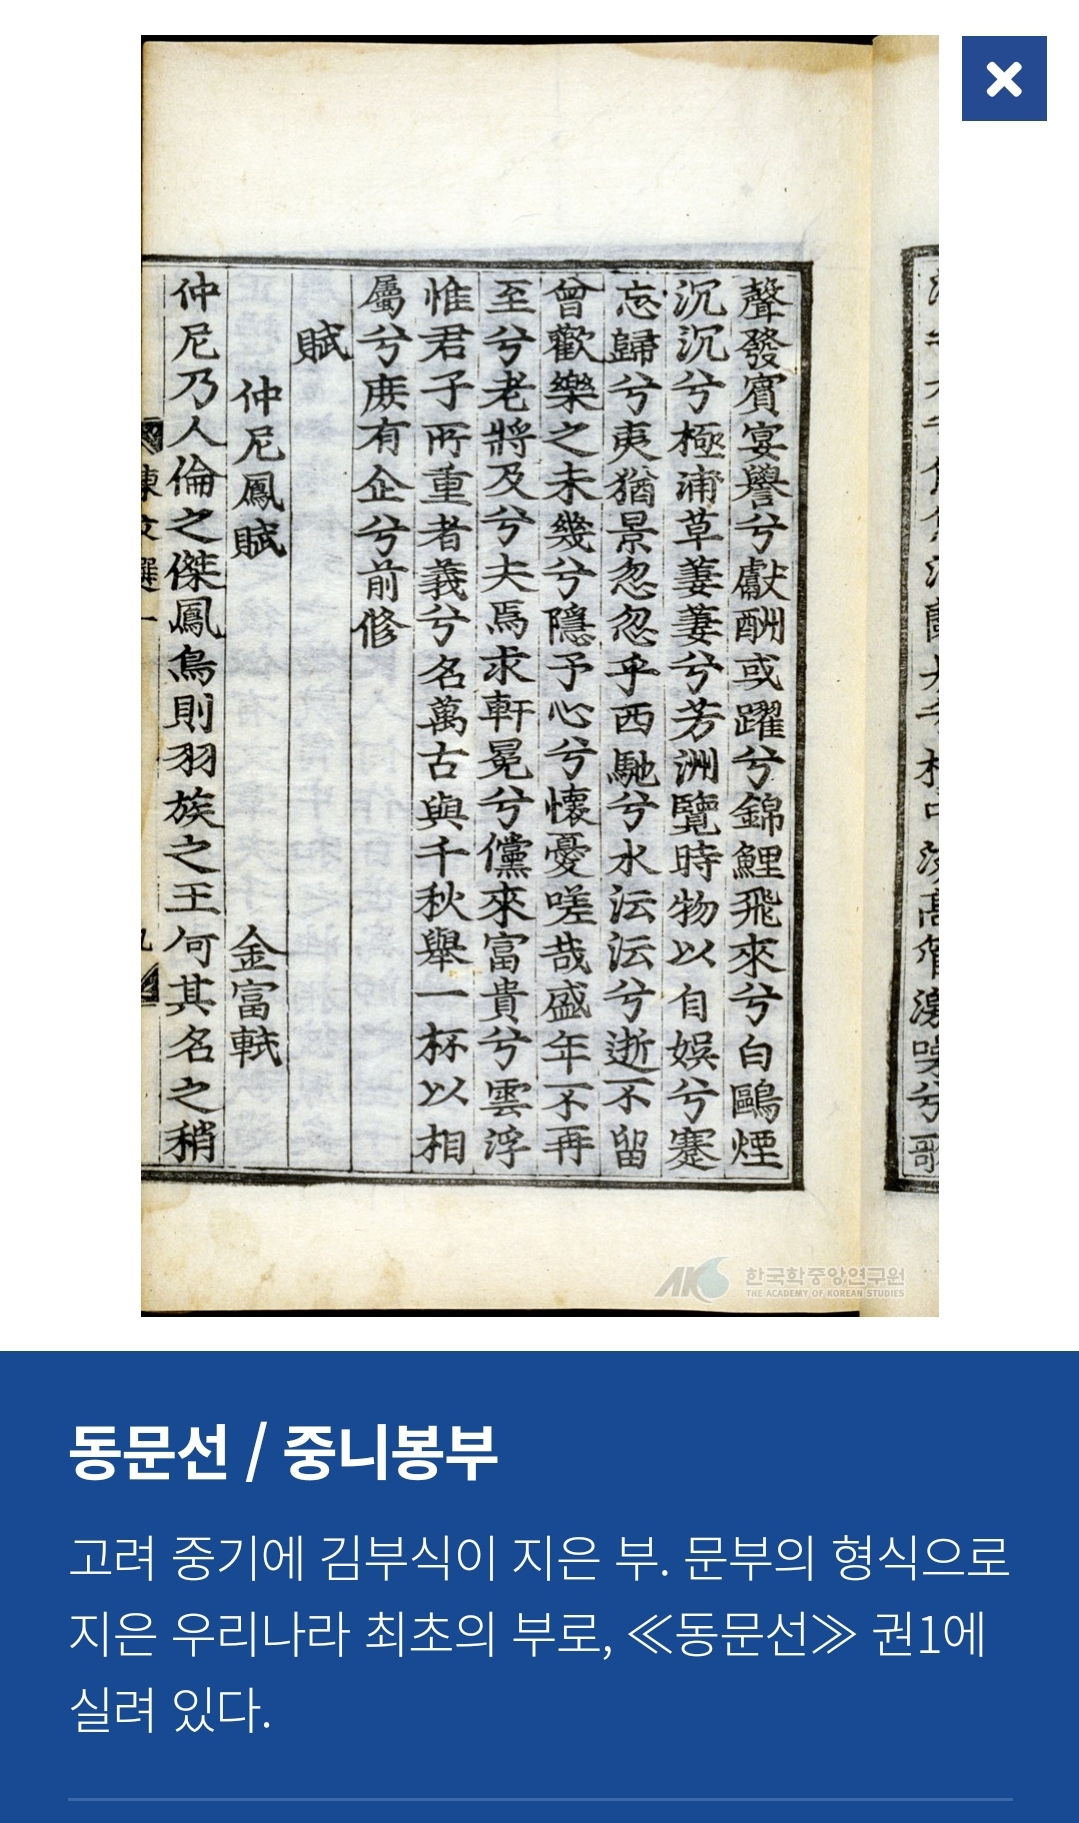 聲發賓宴譽兮獻酬或躍兮錦鯉飛來兮白鷗煙
沉沉兮極浦草萋萋兮芳洲覽時物以自娛兮蹇
忘歸兮夷猶景忽忽乎西馳兮水沄沄兮逝不留
曾歡樂之未幾兮隱予心兮懷憂嗟哉盛年不再
至兮老將及兮夫焉求軒冕兮儻來富貴兮雲浮
惟君子所重者義兮名萬古與千秋舉一杯以相
屬兮庶有企兮前修
賦
仲尼鳳賦 金富軾
仲尼乃人倫之傑鳳鳥則羽族之王何其名之稍
한국학중앙연구원
THE ACADEMY OF KOREAN STUDIES
동문선 / 중니봉부
고려 중기에 김부식이 지은 부. 문부의 형식으로
지은 우리나라 최초의 부로, ≪동문선≫ 권1에
실려 있다.